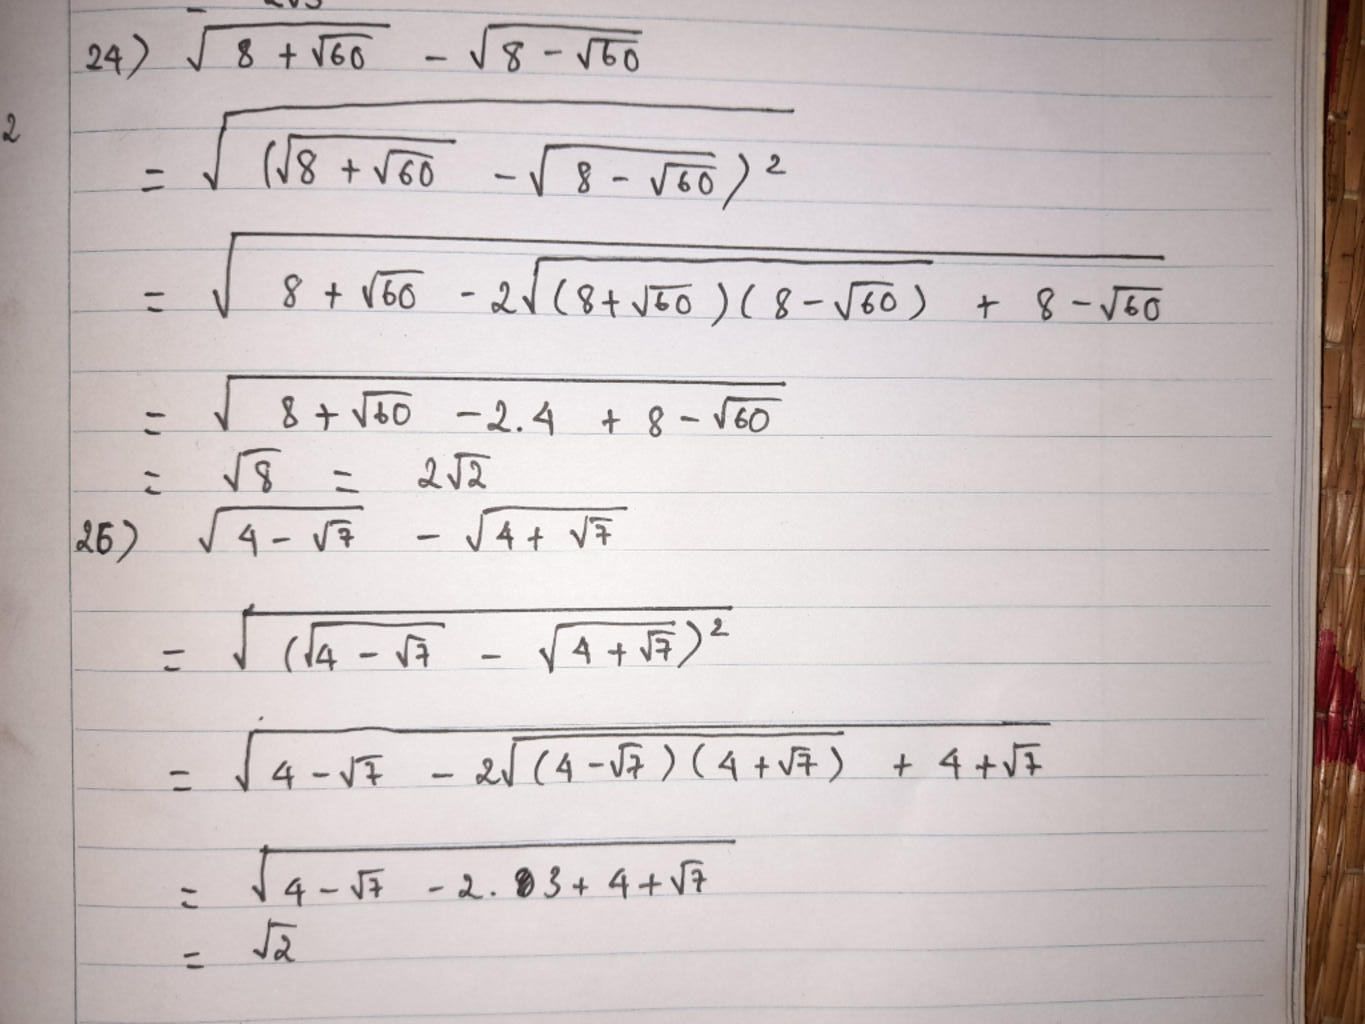 24) √(8 + √60) - √(8 - √60)
2
= √((√(8 + √60) - √(8 - √60))²)
= √(8 + √60 - 2√((8 + √60)(8 - √60)) + 8 - √60)
= √(8 + √60 - 2.4 + 8 - √60)
= √8 = 2√2
26) √(4 - √7) - √(4 + √7)
= √((√(4 - √7) - √(4 + √7))²)
= √(4 - √7 - 2√((4 - √7)(4 + √7)) + 4 + √7)
= √(4 - √7 - 2. 3 + 4 + √7)
= √2